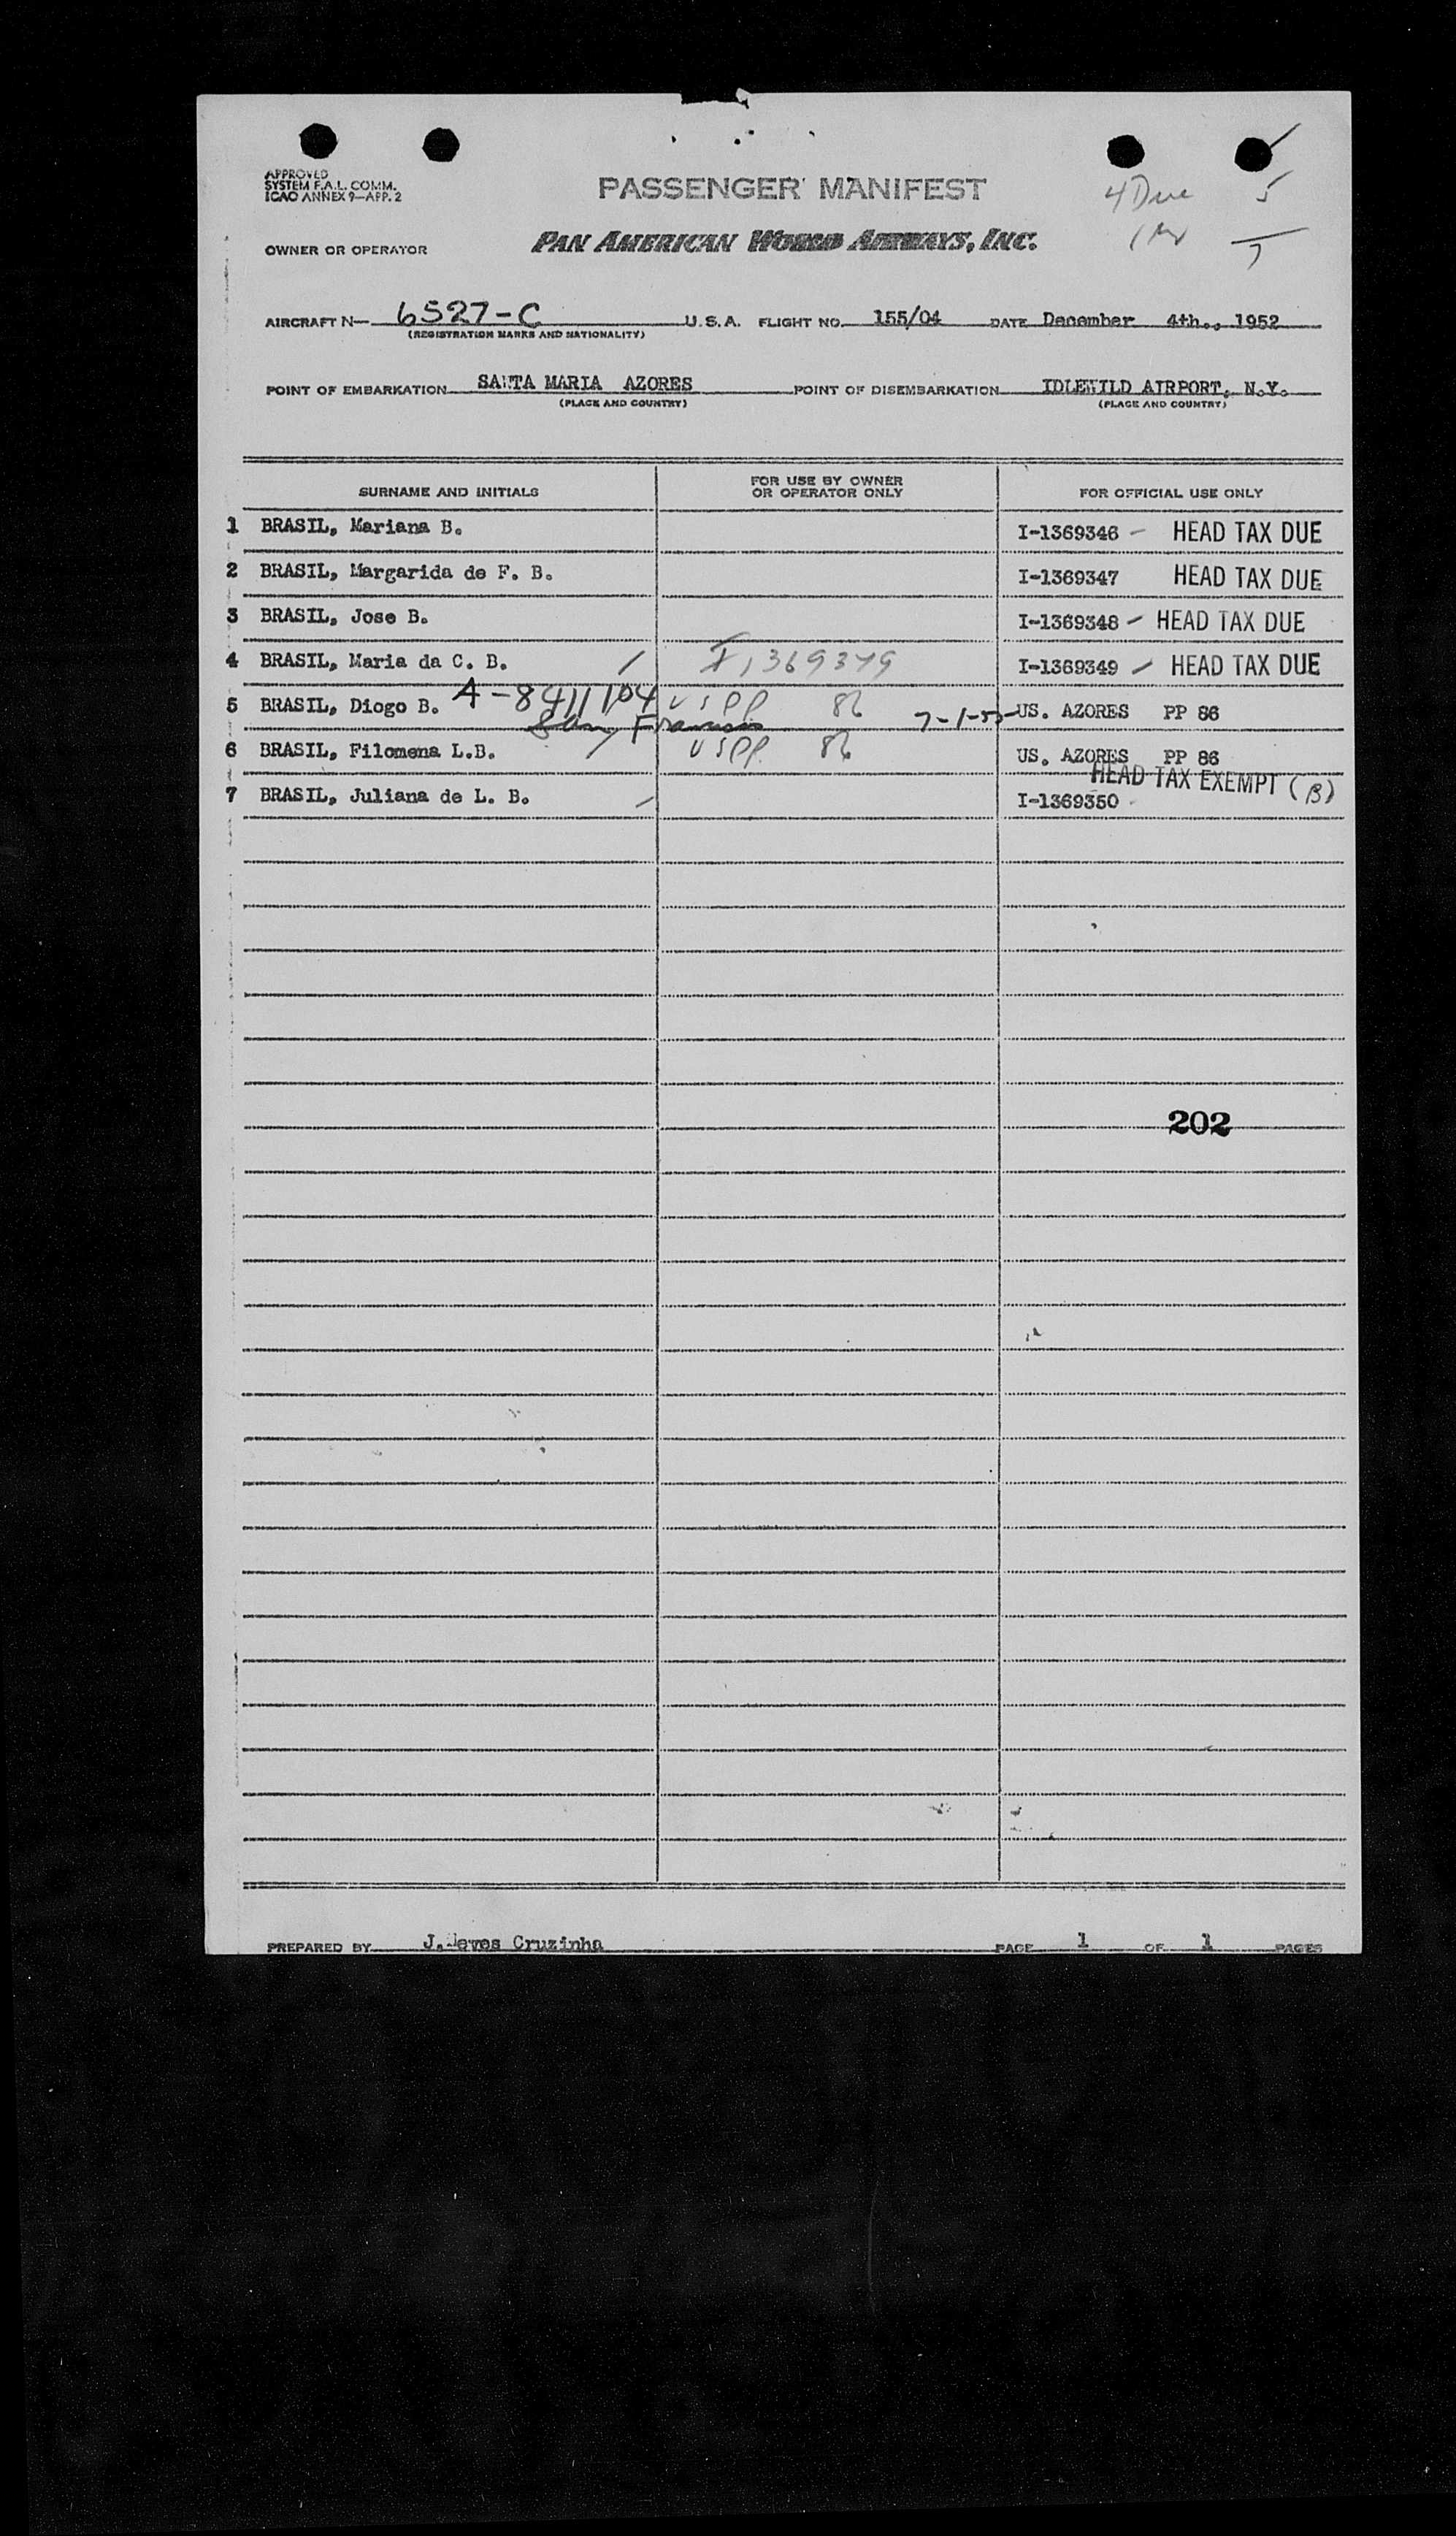 APPROVED
SYSTEM F.A.L. COMM.
ICAO ANNEX 9—APP. 2
PASSENGER MANIFEST
4 Due 5
7
OWNER OR OPERATOR PAN AMERICAN WORLD AIRWAYS, INC.
AIRCRAFT N— 6527-C U.S.A. FLIGHT NO. 155/04 DATE December 4th., 1952
(REGISTRATION MARKS AND NATIONALITY)
POINT OF EMBARKATION SANTA MARIA AZORES POINT OF DISEMBARKATION IDLEWILD AIRPORT, N.Y.
(PLACE AND COUNTRY) (PLACE AND COUNTRY)
SURNAME AND INITIALS FOR USE BY OWNER OR OPERATOR ONLY FOR OFFICIAL USE ONLY
1 BRASIL, Mariana B. I-1369346 - HEAD TAX DUE
2 BRASIL, Margarida de F. B. I-1369347 HEAD TAX DUE
3 BRASIL, Jose B. I-1369348 - HEAD TAX DUE
4 BRASIL, Maria da C. B. / I, 369349 I-1369349 - HEAD TAX DUE
5 BRASIL, Diogo B. A-8411104 USPP 86 US. AZORES PP 86
San Francisco 7-1-55
6 BRASIL, Filomena L.B. / USPP. 86 US. AZORES PP 86
HEAD TAX EXEMPT (B)
7 BRASIL, Juliana de L. B. / I-1369350
202
PREPARED BY J. Neves Cruzinha PAGE 1 OF 1 PAGES